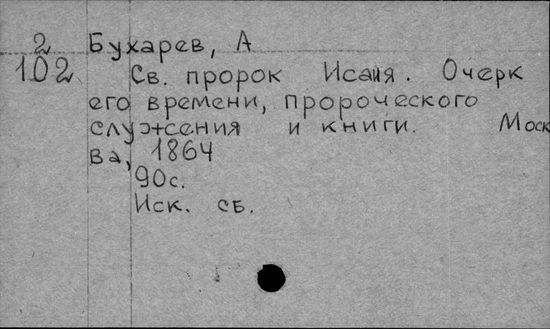 2 Бухарев, А
102 Св. пророк Исаия. Очерк
его времени, пророческого
служения и книги. Моск
ва, 1864
90с.
Иск. сб.